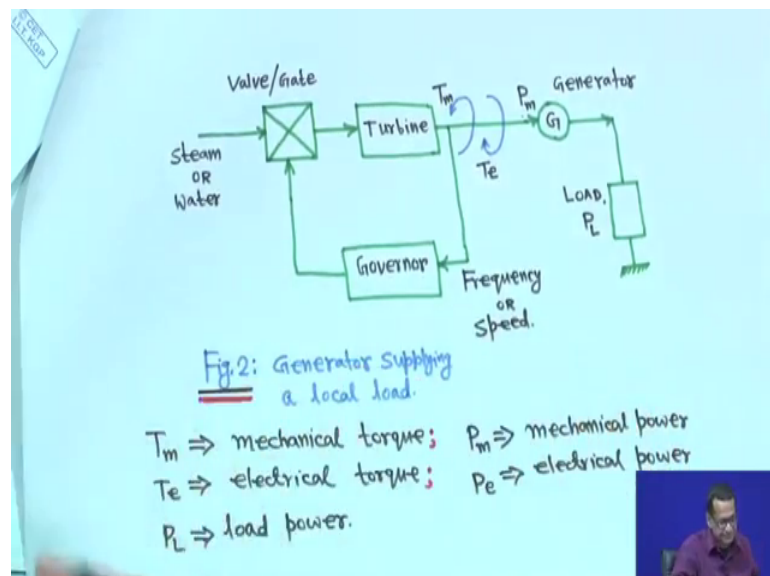 © CET
I.I.T. KGP
Valve/Gate
Steam
OR
Water
Turbine
Tm
Te
Pm
Generator
G
LOAD,
PL
Governor
Frequency
OR
Speed.
Fig.2: Generator Supplying
a local load.
Tm ⇒ mechanical torque; Pm ⇒ mechanical power
Te ⇒ electrical torque; Pe ⇒ electrical power
PL ⇒ load power.